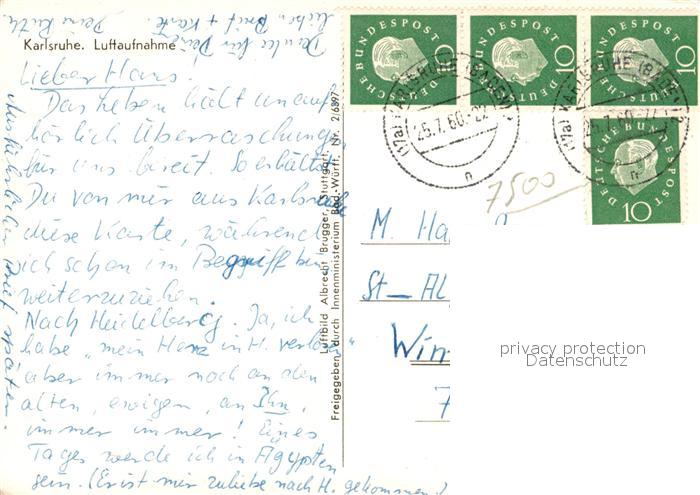 Danke für Deinen
lieben Brief + Karte.
Deine Ruth
Karlsruhe. Luftaufnahme
Lieber Hans.
Das Leben hält unauf-
hörlich Überraschungen
für uns bereit. So erhältst
Du von mir aus Karlsruhe
diese Karte, während
ich schon im Begriff bin
weiterzuziehen.
Nach Heidelberg. Ja, ich
habe „mein Herz in H. verloren"
aber immer noch an den
alten, ewigen, an Ihn,
immer immer! Eines
Tages werde ich in Ägypten
sein. (Er ist mir zuliebe nach H. gekommen!)
Ausführlicher Brief später.
Luftbild Albrecht Brugger, Stuttgart.
Freigegeben durch Innenministerium Bad.-Württ. Nr. 2/6897
DEUTSCHE BUNDESPOST
10
DEUTSCHE BUNDESPOST
10
DEUTSCHE BUNDESPOST
10
DEUTSCHE BUNDESPOST
10
(17a) KARLSRUHE (BADEN) 2
25.7.60.-22
n
(17a) KARLSRUHE (BADEN) 2
25.7.60.-22
n
7500
M. Ha
St-Al
Win
7
privacy protection
Datenschutz